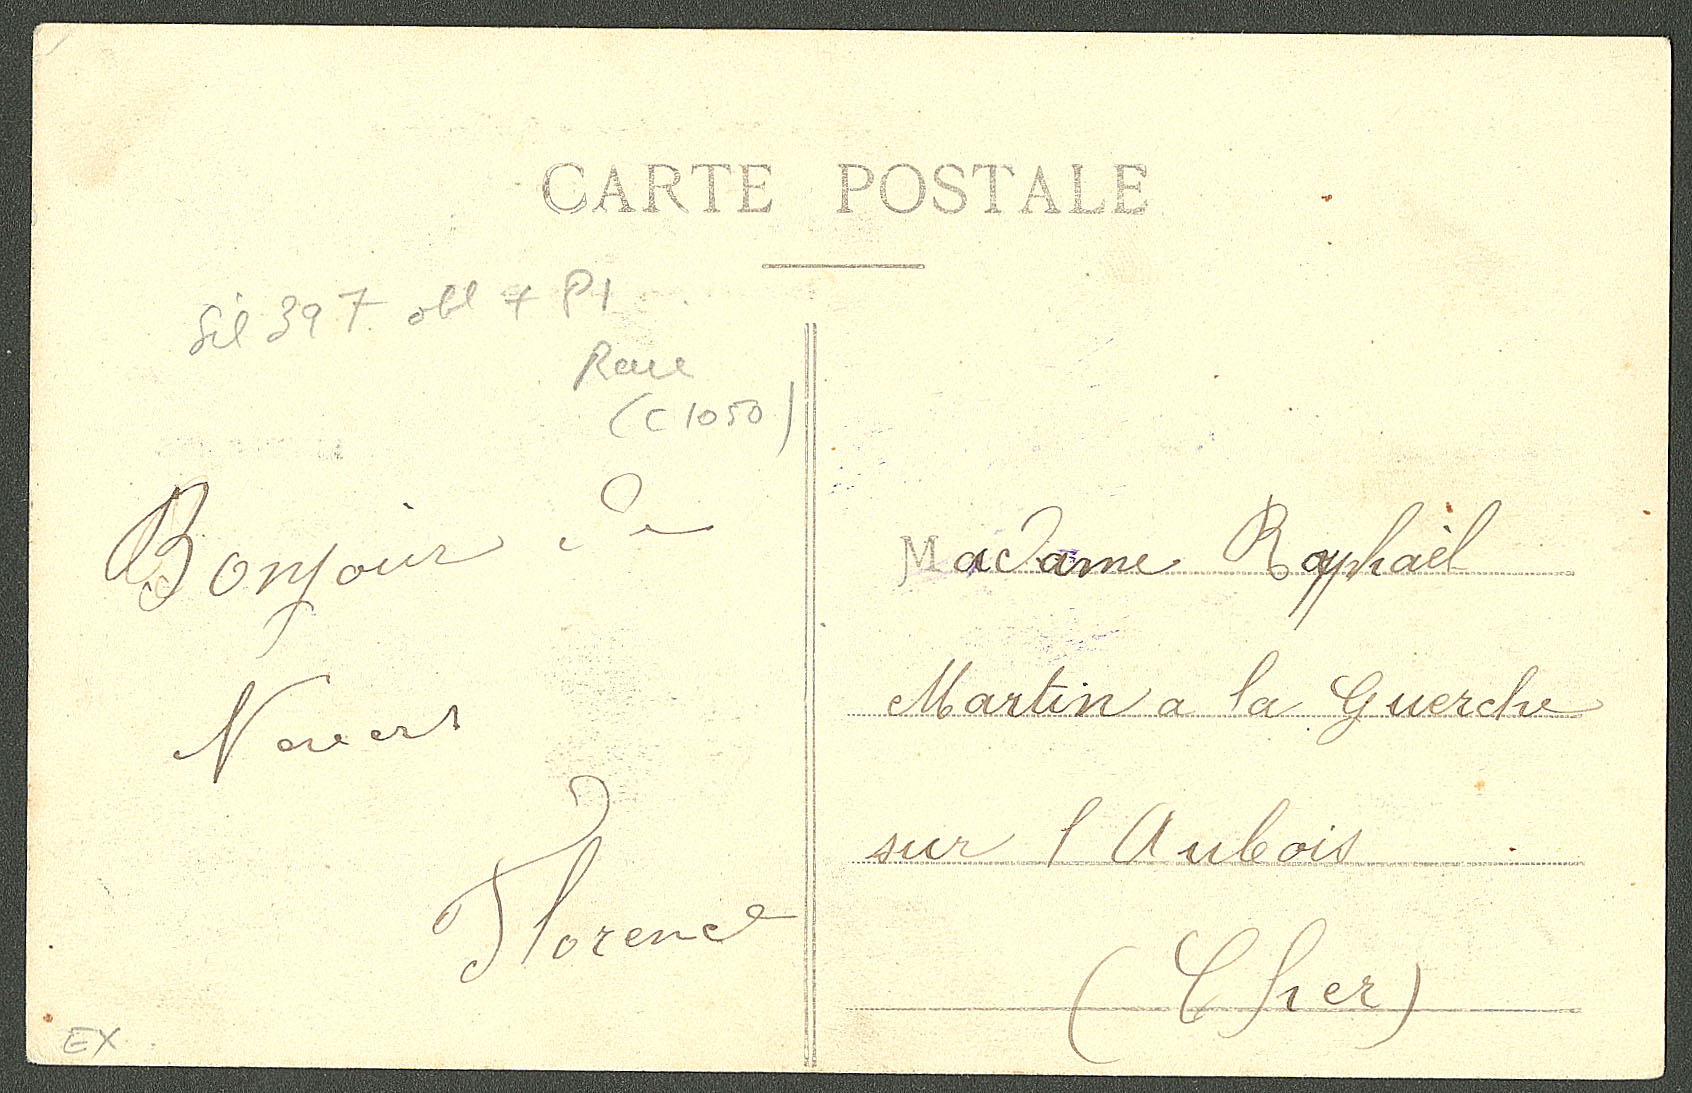 CARTE POSTALE
Sil 397 obl + P1
Rare
(C 1050)
Bonjour de
Nevers
Florence
Madame Raphaël
Martin a la Guerche
sur l Aubois
(Cher)
EX